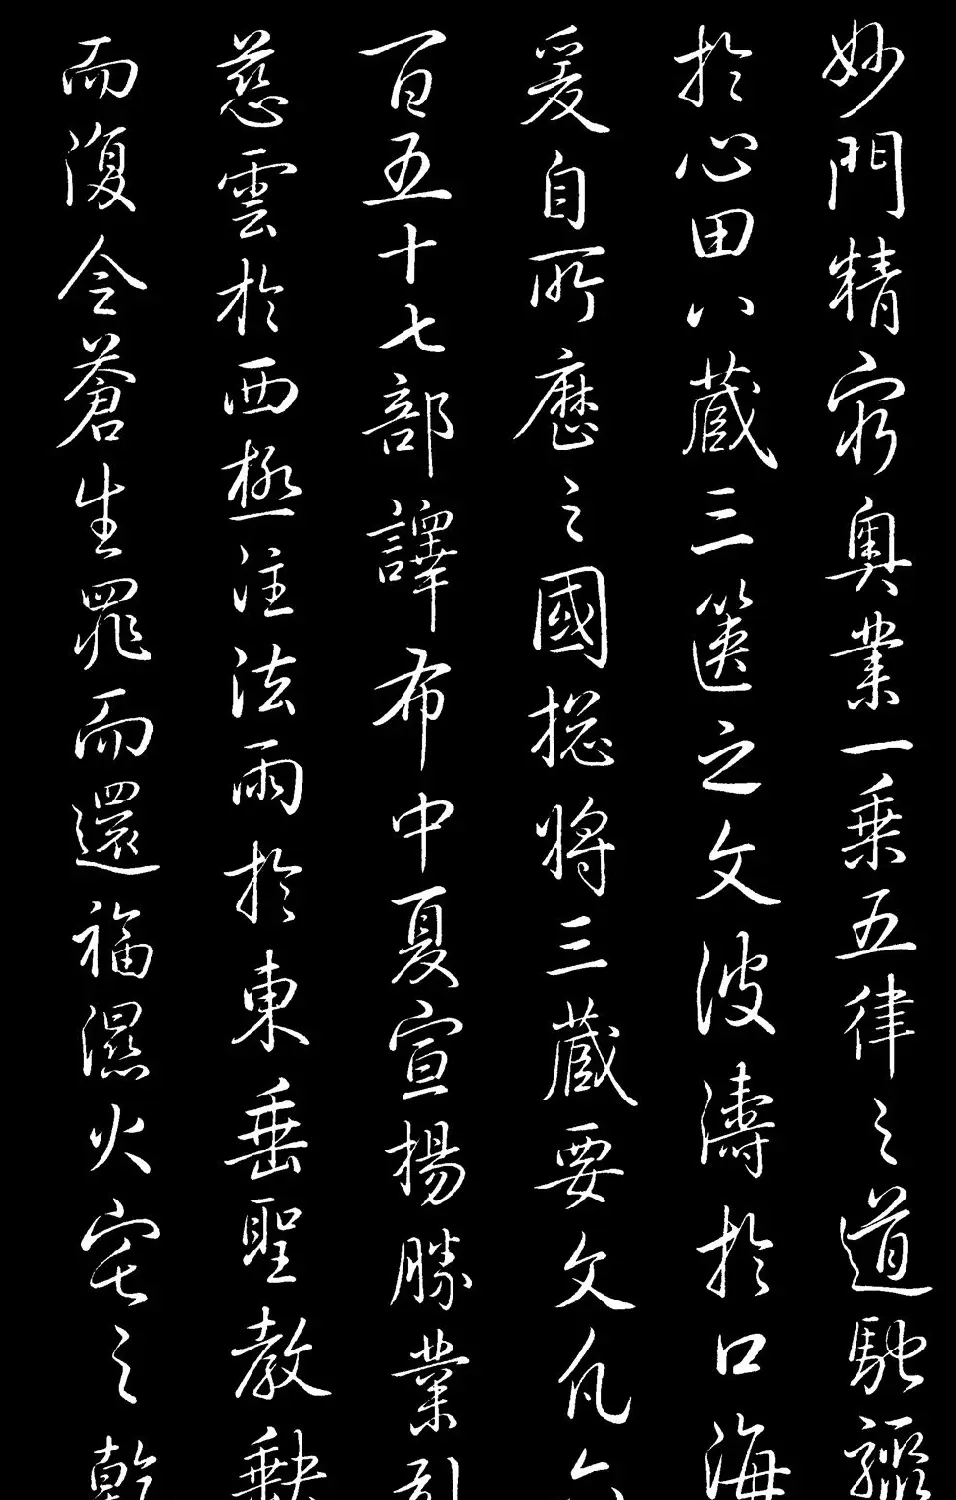 妙門精窮奧業一乗五律之道馳驟
於心田八蔵三篋之文波濤於口海
爰自所歷之國揔將三蔵要文凡六
百五十七部譯布中夏宣揚勝業引
慈雲於西極注法雨於東垂聖教缺
而復令蒼生罪而還福濕火宅之乾